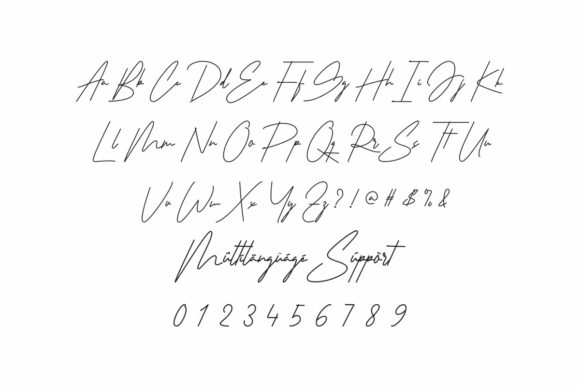 Aa Bb Cc Dd Ee Ff Gg Hh Ii Jj Kk
Ll Mm Nn Oo Pp Qq Rr Ss Tt Uu
Vv Ww Xx Yy Zz ? ! @ # $ % &
Mültilängüägé Süppört
0 1 2 3 4 5 6 7 8 9